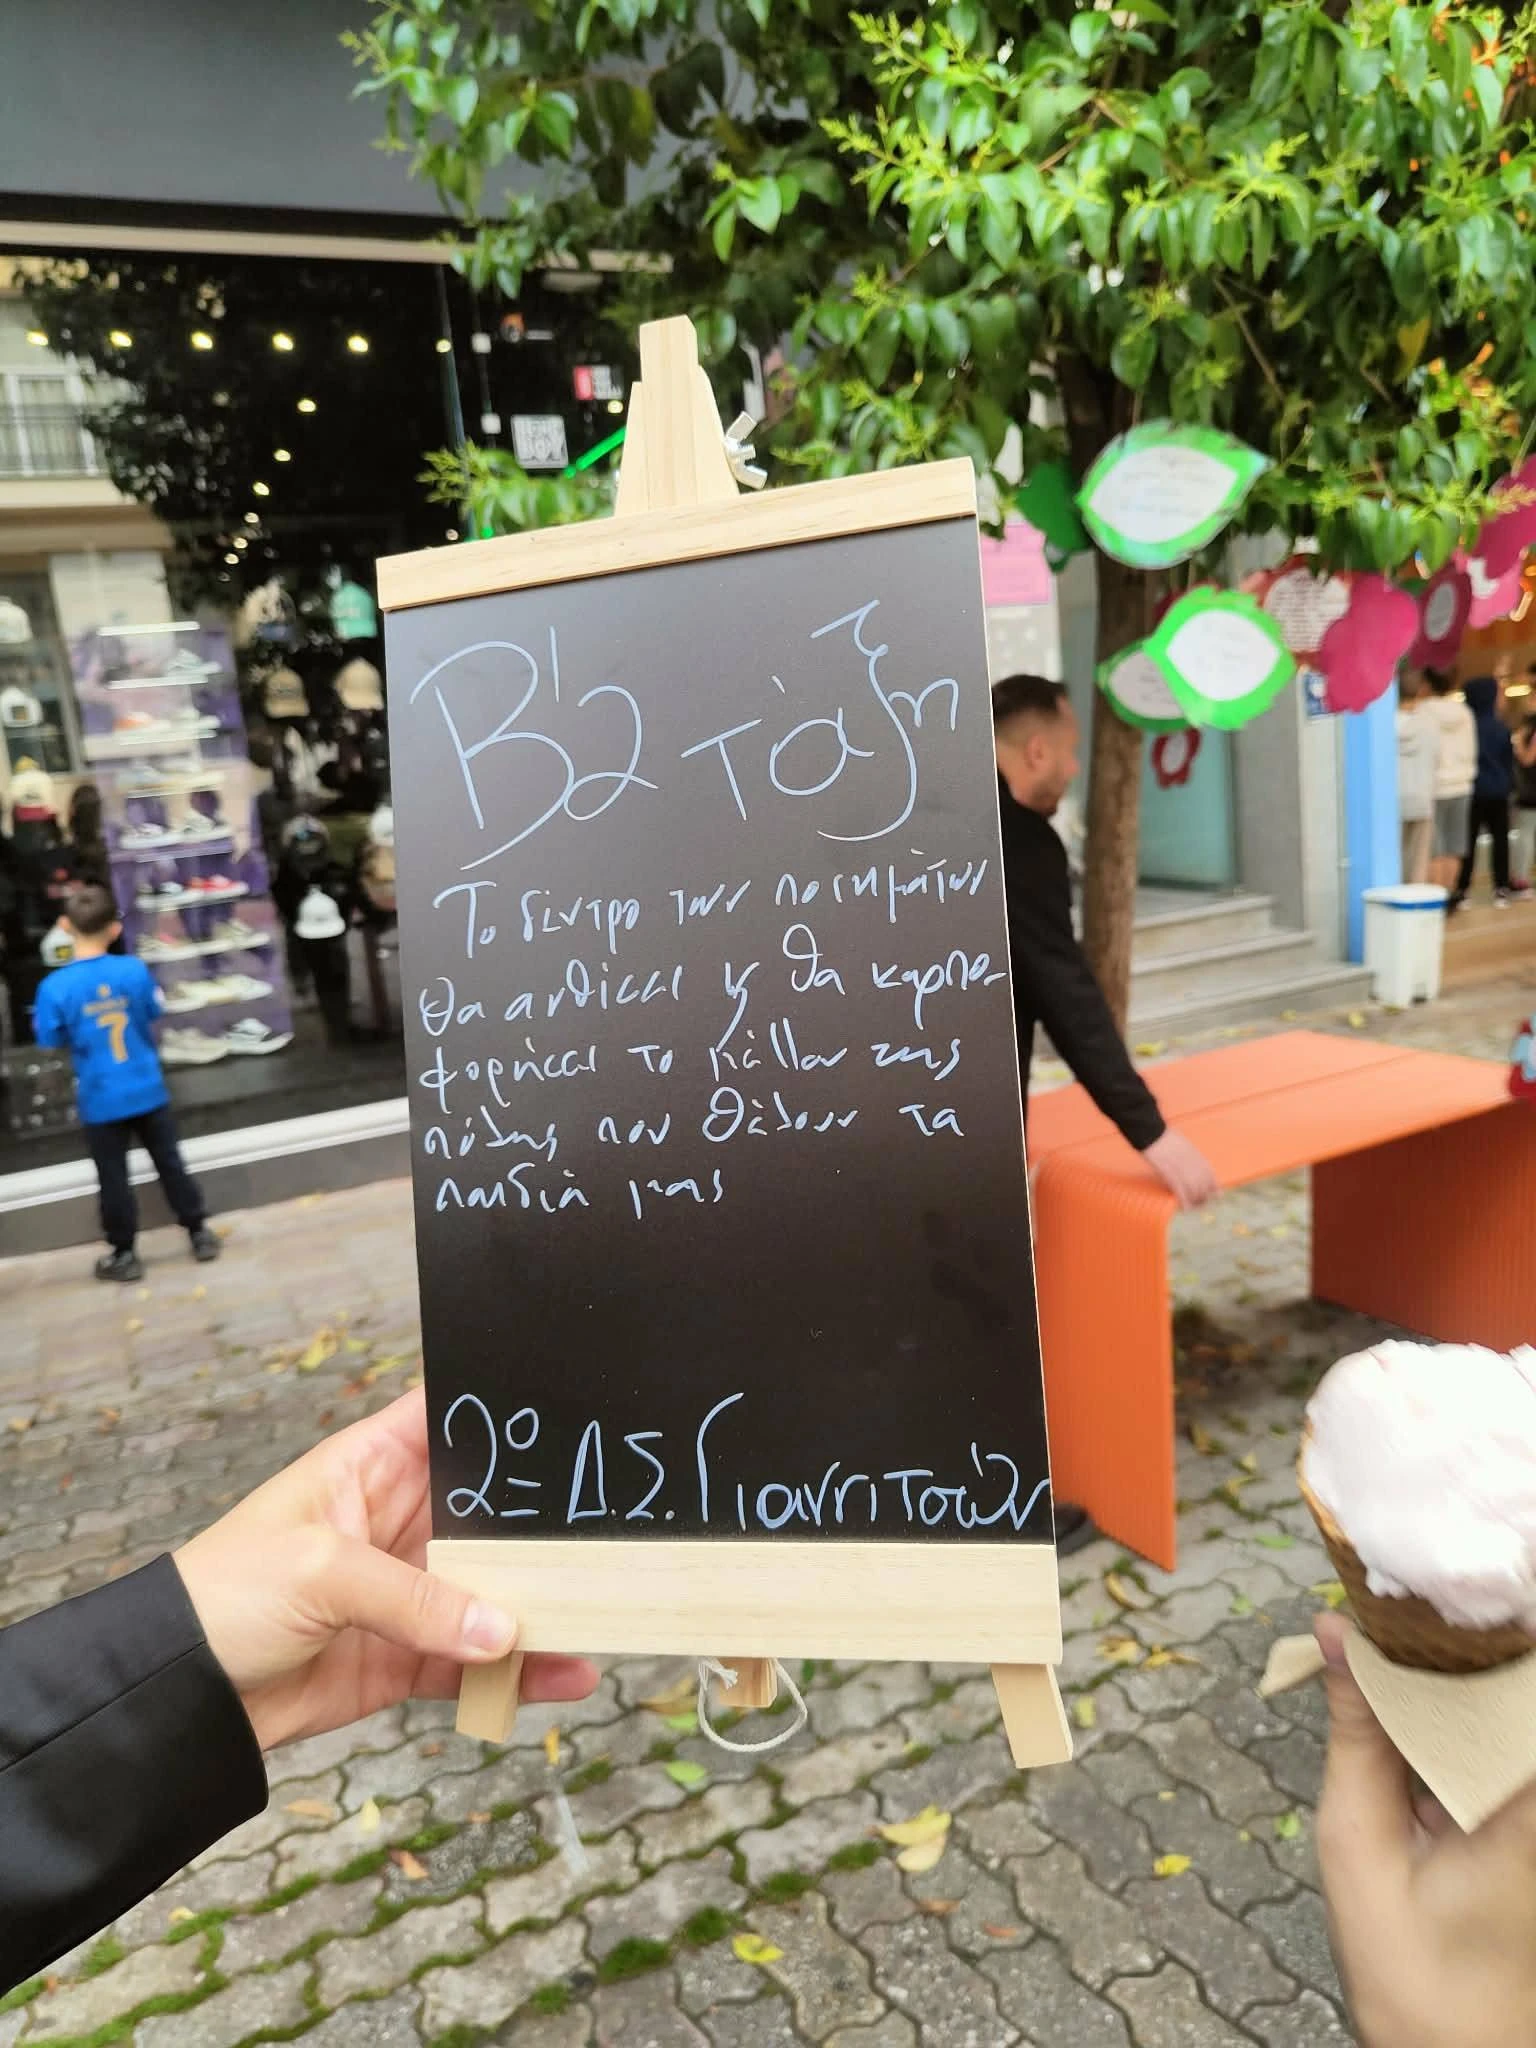 Β'2 τάξη
Το δέντρο των ποιημάτων
θα ανθίσει ϗ θα καρπο-
φορήσει το μέλλον της
πόλης που θέλουν τα
παιδιά μας
2ο Δ.Σ. Γιαννιτσών
7